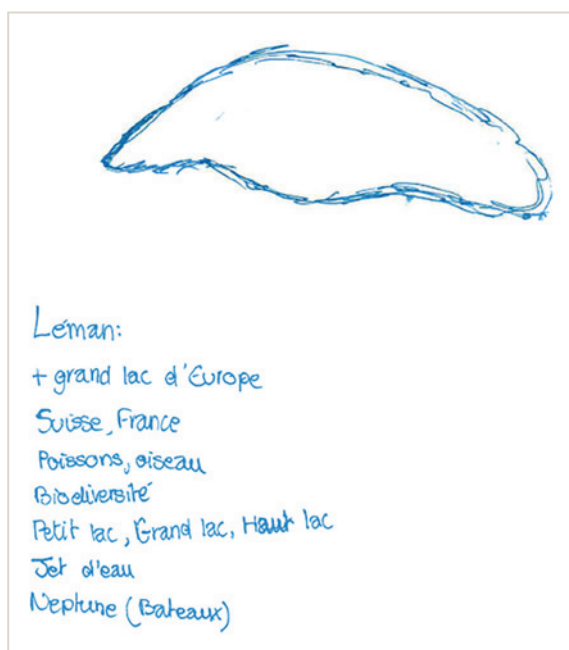 Léman:
+ grand lac d'Europe
Suisse, France
Poissons, oiseau
Biodiversité
Petit lac, Grand lac, Haut lac
Jet d'eau
Neptune (Bateaux)